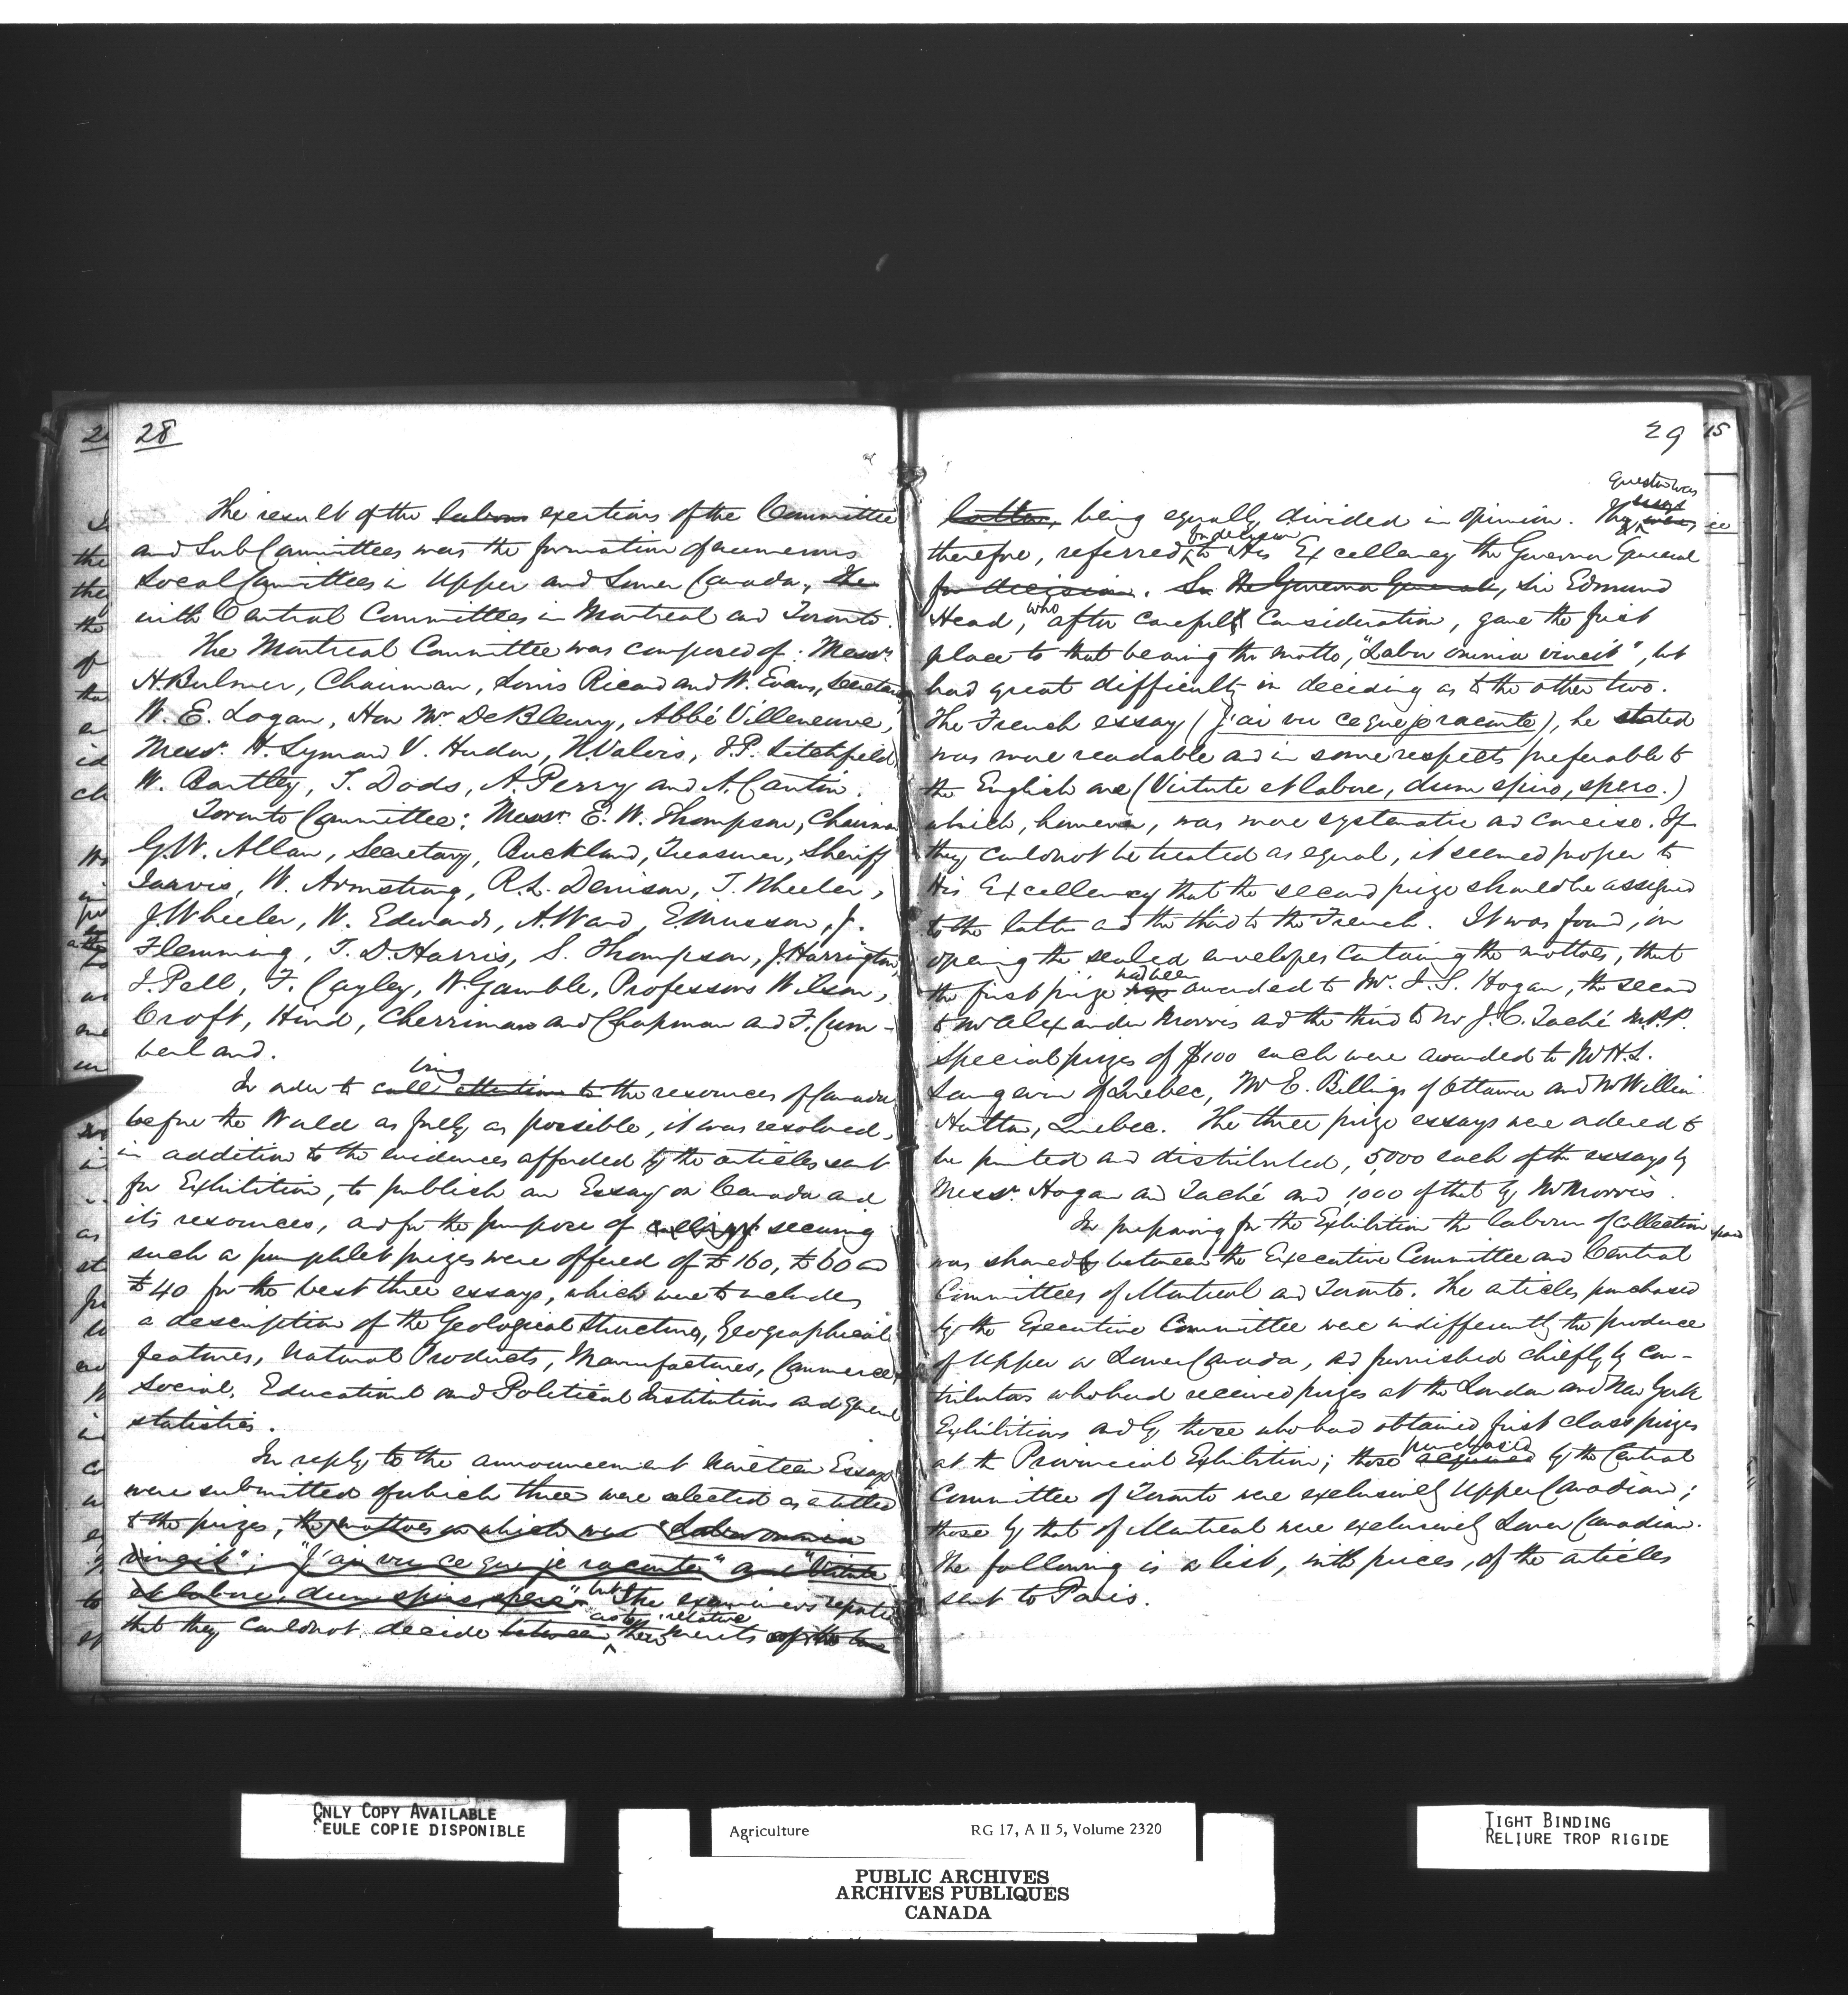 28
The result of the labors exertions of the Committee
and Sub Committees was the formation of numerous
Local Committees in Upper and Lower Canada, the
with Central Committees in Montreal and Toronto.
The Montreal Committee was composed of: Messrs
H. Bulmer, Chairman, Louis Ricard and W. Evans, Secretary
W. E. Logan, Hon Mr DeBleury, Abbé Villeneuve,
Messrs H. Lyman V. Hudon, N. Valois, J. P. Litchfield
W. Bartley, T. Dods, A. Perry and A. Cantin.
Toronto Committee: Messrs E. W. Thompson, Chairman
G. W. Allan, Secretary, Buckland, Treasurer, Sheriff
Jarvis, W. Armstrong, R. L. Denison, T. Wheeler,
J. Wheeler, W. Edwards, A. Ward, E. Musson, J.
Flemming, T. D. Harris, S. Thompson, J. Harrington
J. Pell, F. Cayley, W. Gamble, Professors Wilson,
Croft, Hind, Cherriman and Chapman and F. Cum-
berland.
bring
In order to call attention to the resources of Canada
before the World as fully as possible, it was resolved,
in addition to the evidences afforded by the articles sent
for Exhibition, to publish an Essay on Canada and
its resources, and for the purpose of securing
such a pamphlet prizes were offered of £160, £60 and
£40 for the best three essays, which were to include
a description of the Geological Structure, Geographical
features, Natural Products, Manufactures, Commerce
Social, Educational and Political Institutions and general
statistics.
In reply to the announcement nineteen Essays
were submitted of which three were selected as entitled
to the prizes, the mottoes on which was "Labor omnia
vincit"; "J'ai vu ce que je raconte" and "Virtute
et labore, dum spiro, spero" but The examiners reported
as to relative
that they could not decide between their merits of the two
29
question was
latter, being equally divided in opinion. They were
for decision
therefore, referred to His Excellency the Governor General
for decision. Sir the Governor General, Sir Edmund
who
Head, after careful consideration, gave the first
place to that bearing the motto, "Labor omnia vincit", but
had great difficulty in deciding as to the other two.
The French essay (J'ai vu ce que je raconte), he stated
was more readable and in some respects preferable to
the English one (Virtute et labore, dum spiro, spero.)
which, however, was more systematic and concise. If
they could not be treated as equal, it seemed proper to
His Excellency that the second prize should be assigned
to the latter and the third to the French. It was found, on
opening the sealed envelopes containing the mottoes, that
had been
the first prize was awarded to Mr. J. S. Hogan, the second
to Mr Alexander Morris and the third to Mr J. C. Taché M.P.P.
Special prizes of $100 each were awarded to Mr H. L.
Langevin of Quebec, Mr E. Billings of Ottawa and Mr William
Hutton, Quebec. The three prize essays were ordered to
be printed and distributed, 5,000 each of the essays by
Messrs. Hogan and Taché and 1000 of that by Mr Morris.
In preparing for the Exhibition the labour of collection
was shared between the Executive Committee and Central
Committees of Montreal and Toronto. The articles purchased
by the Executive Committee were indifferently the produce
of Upper or Lower Canada, and furnished chiefly by con-
tributors who had received prizes at the London and New York
Exhibitions and by those who had obtained first class prizes
purchased
at the Provincial Exhibition; those acquired by the Central
Committee of Toronto were exclusively Upper Canadian;
those by that of Montreal were exclusively Lower Canadian.
The following is a list, with prices, of the articles
sent to Paris.
ONLY COPY AVAILABLE
SEULE COPIE DISPONIBLE
Agriculture RG 17, A II 5, Volume 2320
PUBLIC ARCHIVES
ARCHIVES PUBLIQUES
CANADA
TIGHT BINDING
RELIURE TROP RIGIDE